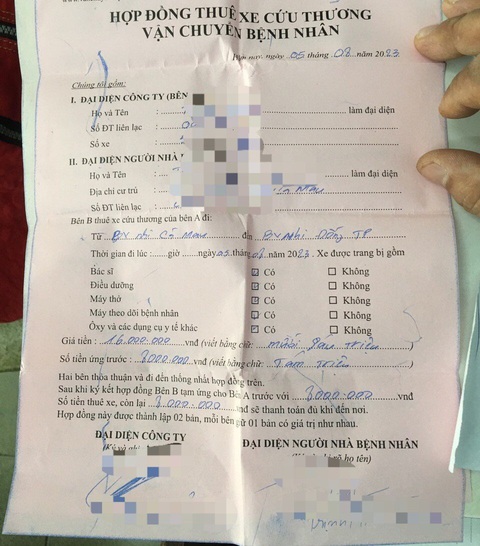 HỢP ĐỒNG THUÊ XE CỨU THƯƠNG
VẬN CHUYỂN BỆNH NHÂN
nay, ngày 05 tháng 08 năm 2023
Chúng tôi gồm:
I. ĐẠI DIỆN CÔNG TY (BÊN
Họ và Tên : làm đại diện
Số ĐT liên lạc :
Số xe :
II. ĐẠI DIỆN NGƯỜI NHÀ
Họ và Tên : làm đại diện
Địa chỉ cư trú : Cà Mau
Số ĐT liên lạc :
Bên B thuê xe cứu thương của bên A đi:
Từ BV nhi Cà Mau đến BV Nhi Đồng TP
Thời gian đi lúc:......giờ ......ngày 05 tháng 08 năm 2023. Xe được trang bị gồm
Bác sĩ ☑ Có ☐ Không
Điều dưỡng ☑ Có ☐ Không
Máy thở ☑ Có ☐ Không
Máy theo dõi bệnh nhân ☑ Có ☐ Không
Ôxy và các dụng cụ y tế khác ☑ Có ☐ Không
Giá tiền : 16.000.000 vnđ (viết bằng chữ: mười sáu triệu )
Số tiền ứng trước : 8000.000 vnđ (viết bằng chữ: Tám triệu )
Hai bên thỏa thuận và đi đến thống nhất hợp đồng trên.
Sau khi ký kết hợp đồng Bên B tạm ứng cho Bên A trước với 8000.000 vnđ
Số tiền thuê xe, còn lại 8000.000 vnđ sẽ thanh toán đủ khi đến nơi.
Hợp đồng này được thành lập 02 bản, mỗi bên giữ 01 bản có giá trị như nhau.
ĐẠI DIỆN CÔNG TY ĐẠI DIỆN NGƯỜI NHÀ BỆNH NHÂN
(Ký và ghi rõ họ tên)